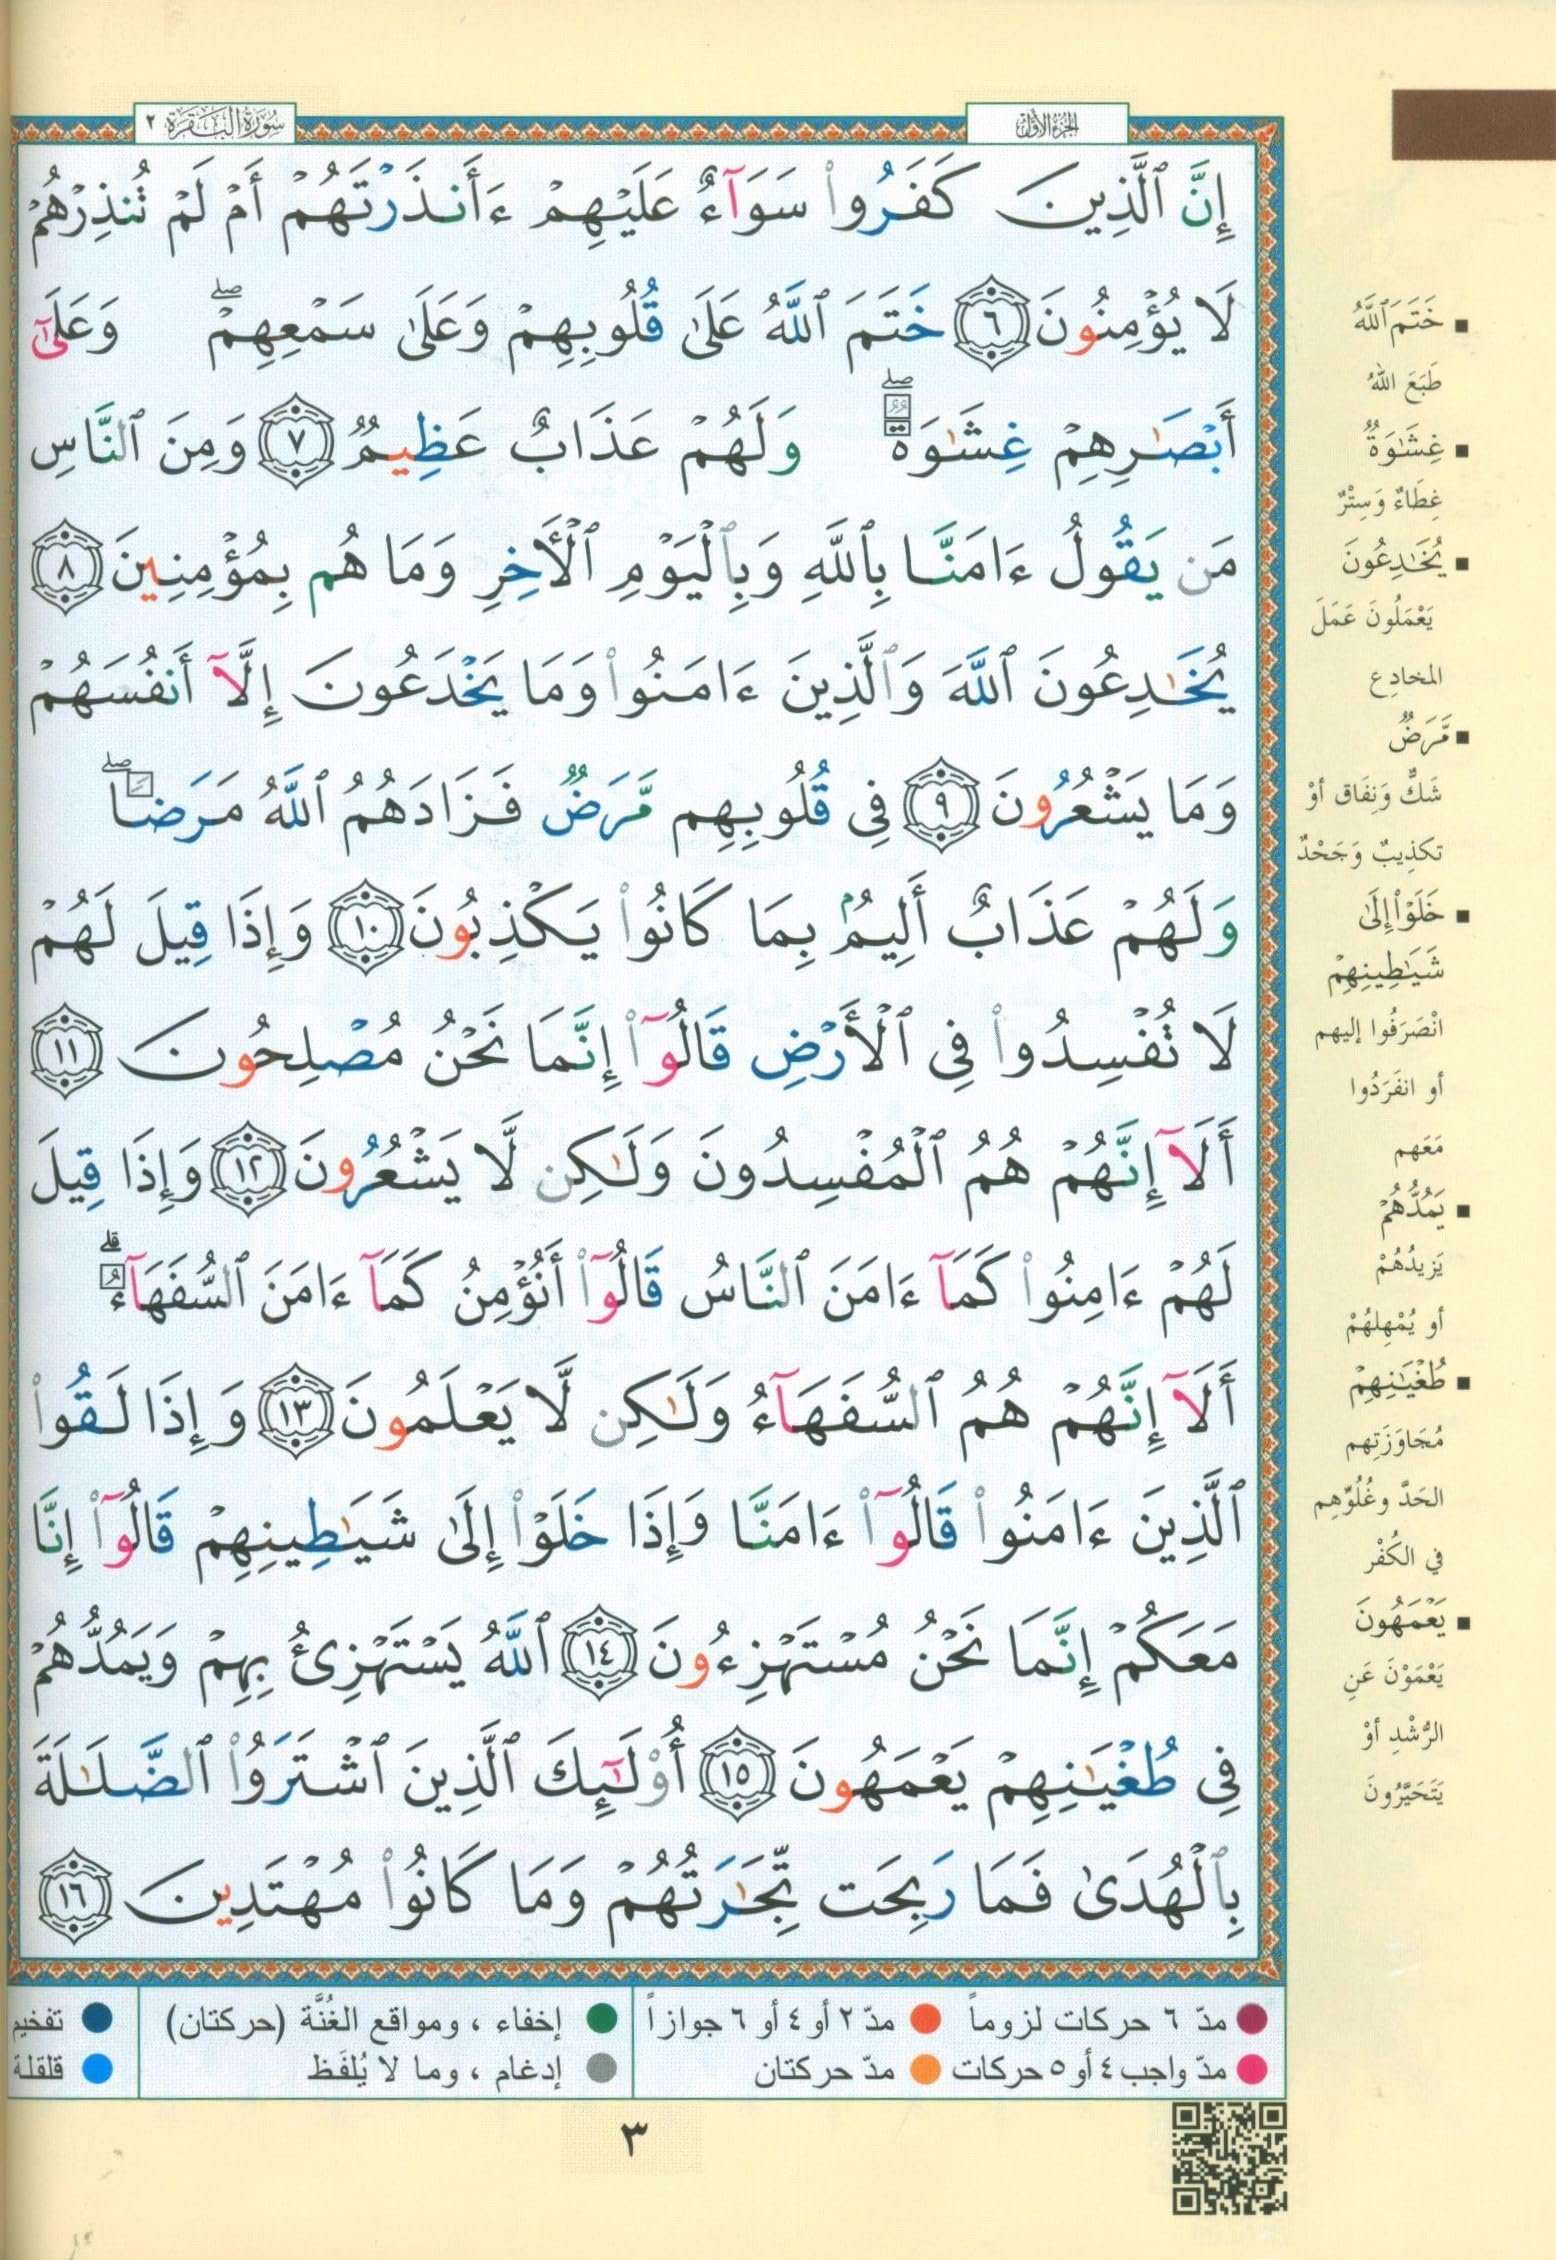 سُورَةُ البَقَرَة ٢
الجُزءُ الأوَّل
إِنَّ ٱلَّذِينَ كَفَرُوا۟ سَوَآءٌ عَلَيْهِمْ ءَأَنذَرْتَهُمْ أَمْ لَمْ تُنذِرْهُمْ
لَا يُؤْمِنُونَ ٦ خَتَمَ ٱللَّهُ عَلَىٰ قُلُوبِهِمْ وَعَلَىٰ سَمْعِهِمْ ۖ وَعَلَىٰٓ
أَبْصَـٰرِهِمْ غِشَـٰوَةٌ ۖ وَلَهُمْ عَذَابٌ عَظِيمٌ ٧ وَمِنَ ٱلنَّاسِ
مَن يَقُولُ ءَامَنَّا بِٱللَّهِ وَبِٱلْيَوْمِ ٱلْأَخِرِ وَمَا هُم بِمُؤْمِنِينَ ٨
يُخَـٰدِعُونَ ٱللَّهَ وَٱلَّذِينَ ءَامَنُوا۟ وَمَا يَخْدَعُونَ إِلَّآ أَنفُسَهُمْ
وَمَا يَشْعُرُونَ ٩ فِى قُلُوبِهِم مَّرَضٌ فَزَادَهُمُ ٱللَّهُ مَرَضًا ۖ
وَلَهُمْ عَذَابٌ أَلِيمٌۢ بِمَا كَانُوا۟ يَكْذِبُونَ ١٠ وَإِذَا قِيلَ لَهُمْ
لَا تُفْسِدُوا۟ فِى ٱلْأَرْضِ قَالُوٓا۟ إِنَّمَا نَحْنُ مُصْلِحُونَ ١١
أَلَآ إِنَّهُمْ هُمُ ٱلْمُفْسِدُونَ وَلَـٰكِن لَّا يَشْعُرُونَ ١٢ وَإِذَا قِيلَ
لَهُمْ ءَامِنُوا۟ كَمَآ ءَامَنَ ٱلنَّاسُ قَالُوٓا۟ أَنُؤْمِنُ كَمَآ ءَامَنَ ٱلسُّفَهَآءُ ۗ
أَلَآ إِنَّهُمْ هُمُ ٱلسُّفَهَآءُ وَلَـٰكِن لَّا يَعْلَمُونَ ١٣ وَإِذَا لَقُوا۟
ٱلَّذِينَ ءَامَنُوا۟ قَالُوٓا۟ ءَامَنَّا وَإِذَا خَلَوْا۟ إِلَىٰ شَيَـٰطِينِهِمْ قَالُوٓا۟ إِنَّا
مَعَكُمْ إِنَّمَا نَحْنُ مُسْتَهْزِءُونَ ١٤ ٱللَّهُ يَسْتَهْزِئُ بِهِمْ وَيَمُدُّهُمْ
فِى طُغْيَـٰنِهِمْ يَعْمَهُونَ ١٥ أُو۟لَـٰٓئِكَ ٱلَّذِينَ ٱشْتَرَوُا۟ ٱلضَّلَـٰلَةَ
بِٱلْهُدَىٰ فَمَا رَبِحَت تِّجَـٰرَتُهُمْ وَمَا كَانُوا۟ مُهْتَدِينَ ١٦
خَتَمَ ٱللَّهُ
طَبَعَ اللهُ
غِشَـٰوَةٌ
غِطَاءٌ وَسِتْرٌ
يُخَـٰدِعُونَ
يَعْمَلُونَ عَمَلَ
المخادِع
مَّرَضٌ
شَكٌّ وَنِفَاق أوْ
تكذِيبٌ وَجَحْدٌ
خَلَوْا۟ إِلَىٰ
شَيَـٰطِينِهِمْ
انْصَرَفُوا إليهم
أو انفَرَدُوا
مَعَهم
يَمُدُّهُمْ
يَزيدُهُمْ
أو يُمْهِلهُمْ
طُغْيَـٰنِهِمْ
مُجَاوَزَتِهم
الحَدَّ وغُلُوِّهِم
في الكُفْر
يَعْمَهُونَ
يَعْمَوْنَ عَنِ
الرُّشْدِ أوْ
يَتَحَيَّرُونَ
مدّ ٦ حركات لزوماً
مدّ ٢ أو ٤ أو ٦ جوازاً
إخفاء ، ومواقع الغُنَّة (حركتان)
تفخيم
مدّ واجب ٤ أو ٥ حركات
مدّ حركتان
إدغام ، وما لا يُلفَظ
قلقلة
٣